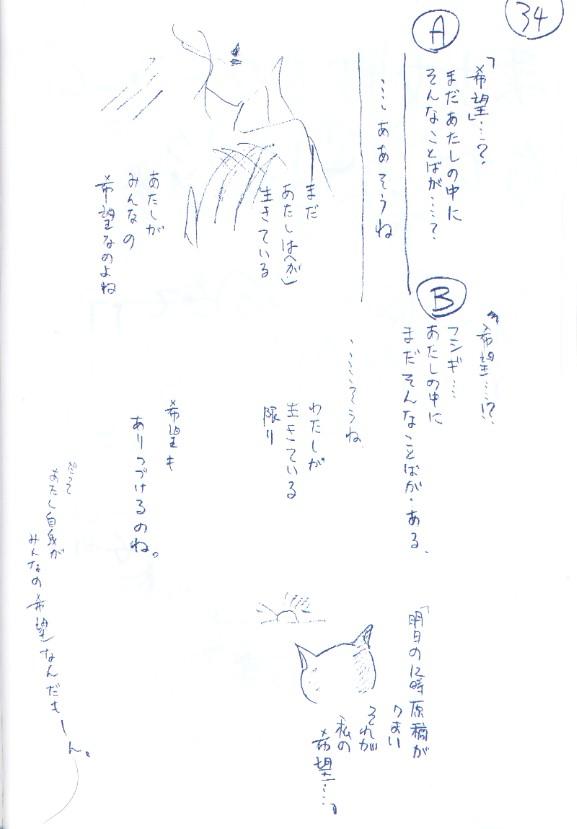 34
A
「希望」…?
まだあたしの中に
そんなことばが……?
……ああそうね
まだ
あたしは(が)
生きている
あたしが
みんなの
希望なのよね
B
「希望…!?
フシギ…
あたしの中に
まだそんなことばが・ある、
……そうね
わたしが
生きている
限り
希望も
ありつづけるのね。
だって
あたし自身が
みんなの希望なんだもーん。
「明日の12時
原稿が
それが
私の
希望…。」